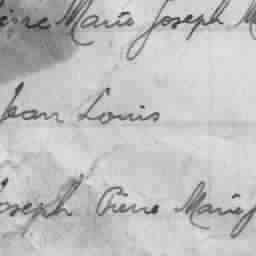 Marie Joseph
Jean Louis
Joseph Pierre Marie